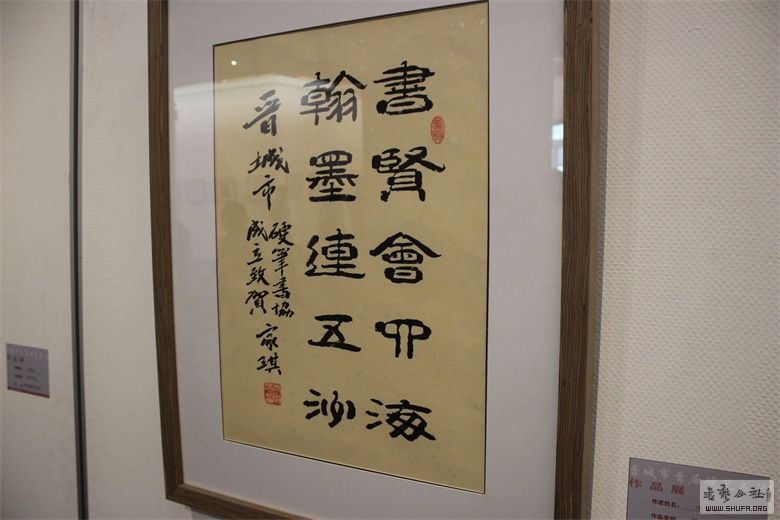 書賢會四海
翰墨連五沙
晉城市
硬筆書協
成立致賀 家琪
晋城市首届
作品展
作者姓名:
作品类别
书艺公社
WWW.SHUFA.ORG